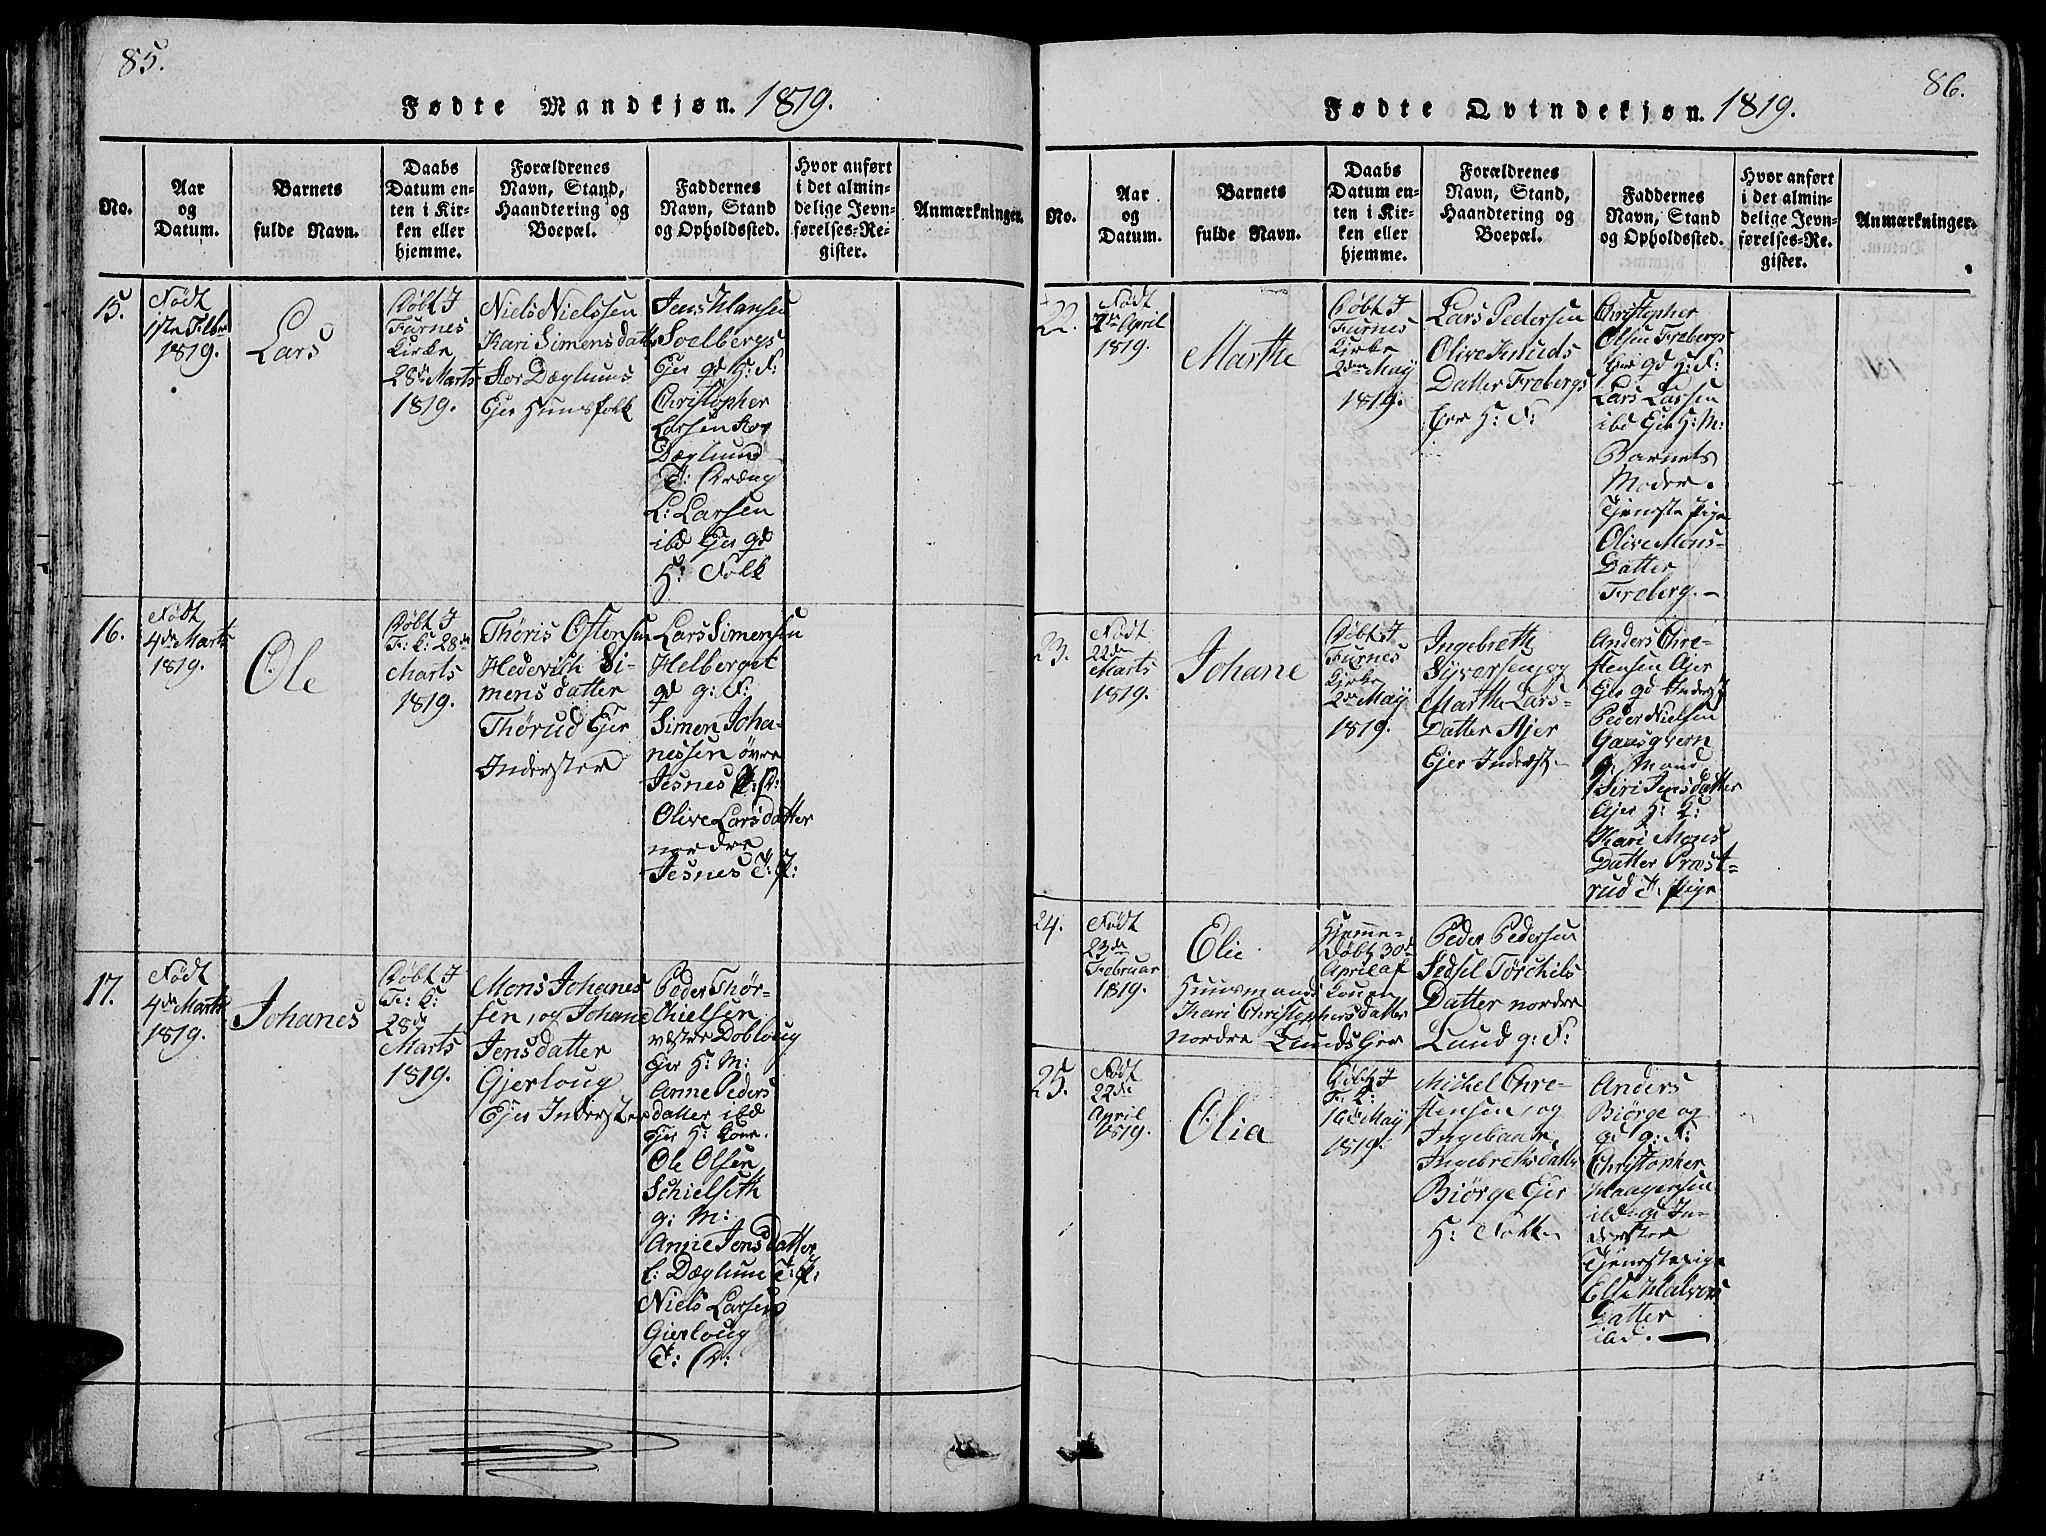 85.
Fødte Mandkjøn. 1819.
No.
Aar
og
Datum.
Barnets
fulde Navn.
Daabs
Datum en-
ten i Kir-
ken eller
hjemme.
Forældrenes
Navn, Stand,
Haandtering og
Boepæl.
Faddernes
Navn, Stand
og Opholdssted.
Hvor anført
i det almin-
delige Jevn-
førelses-Re-
gister.
Anmærkninger.
15.
Født
1819.
Lars
Døbt I
Furnes
Kirke
28de Marts
1819.
Niels Nielssen
Kari Simensdatter
Stor Dæglums
Ejer Huusfolk
Jens Hansen
Soelbergs
Ejer gd H: F:
Christopher
Larsen
Dæglund
T: Dræng
L: Larsen
ibd Ejer gd
H: Folk
16.
Født
4de Marts
1819.
Ole
Døbt I
F: K: 28de
Marts
1819.
Thøris Ostensen
Hedevich Si-
mensdatter
Thørud Ejer
Inderster
Lars Simensen
Helberget
gd g: F:
Simen Joha-
nessen øvre
Jesnes T: D:
Olive Larsdatter
nordre
Jesnes T: P:
17.
Født
4de Marts
1819.
Johanes
Døbt I
F: K:
28de
Marts
1819.
Mons Johanes
sen, og Johane
Jensdatter
Gjerloug
Ejer Inderster
Peder Thør-
chielsen
vestre Dobloug
Ejer H: M:
Anne Peders
datter ibd
Ejer H: Kone.
Ole Olsen
Schielseth
g: M:
Anne Jensdatter
L: Dæglum T: P:
Niels Larsen
Gierloug
T: D:
86.
Fødte Qvindekjøn. 1819.
No.
Aar
og
Datum.
Barnets
fulde Navn.
Daabs
Datum en-
ten i Kir-
ken eller
hjemme.
Forældrenes
Navn, Stand,
Haandtering og
Boepæl.
Faddernes
Navn, Stand
og Opholdssted.
Hvor anført
i det almin-
delige Jevn-
førelses-Re-
gister.
Anmærkninger.
22.
Født
April
1819.
Marthe
Døbt I
Furnes
Kirke
2den May
1819.
Lars Pedersen
Olive Knuds
Datter Frobergs
Ejer H: F:
Christopher
Olsen Frobergs
Ejer gd H: F:
Lars Larsen
ibd Ejer H: M:
Barnets
Moder.
Tjeneste Pige
Olive Mons-
Datter
Froberg.-
23.
Født
22de
Marts
1819.
Johane
Døbt I
Furnes
Kirke
2den May
1819.
Ingebreth
Syversen og
Marthe Lars-
Datter Ajer
Ejer Inderst.-
Anders Chre-
stensen Ajer
Ejer gd Inderst
Peder Nielsen
Gaasqvern
g: Mand
Siri Jensdatter
Ajer H: K:
Kari Mons
Datter Præst-
rud T: Pige
24.
Født
23de
Februar
1819.
Elie
Hjemme-
Døbt 30te
April af
Huusmands Konen
Kari Christophersdatter
nordre Lunds Ejer
Peder Pedersen
Sidsel Törchils
Datter nordre
Lund g: F:
25.
Født
22de
April
1819.
Olia
Døbt I
F: K:
16de May
1819.
Michel Chre-
stensen, og
Ingebaar
Ingebrethsdatter
Biørge Ejer
H: Folk
Anders
Biørge og
gd g: F:
Christopher
Haagensen
ibd gd In-
derster
Tjenestepige
Else Halvors
Datter
ibd.